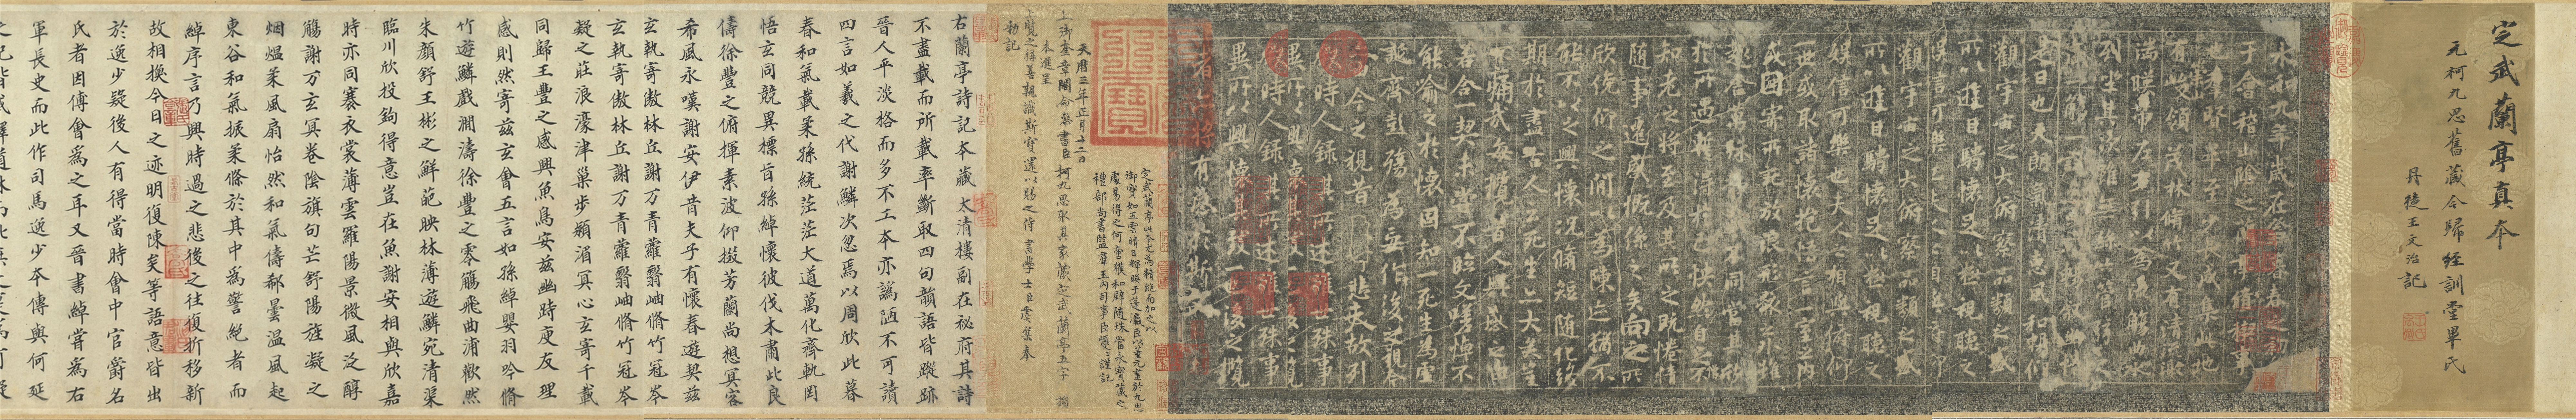 定武蘭亭真本
元柯九思舊藏今歸經訓堂畢氏
丹徒王文治記
永和九年歲在癸丑暮春之初
于會稽山陰之蘭亭脩稧事
也羣賢畢至少長咸集此地
有峻領茂林脩竹又有清流激
湍暎帶左右引以為流觴曲水
列坐其次雖無絲竹管弦之
盛一觴一詠亦足以暢敘幽情
是日也天朗氣清惠風和暢仰
觀宇宙之大俯察品類之盛
所以遊目騁懷足以極視聽之
娛信可樂也夫人之相與俯仰
觀宇宙之大俯察品類之盛
所以遊目騁懷足以極視聽之
娛信可樂也夫人之相與俯仰
一世或取諸懷抱悟言一室之內
或因寄所託放浪形骸之外雖
趣舍萬殊靜躁不同當其欣
於所遇暫得於己快然自足不
知老之將至及其所之既惓情
隨事遷感慨係之矣向之所
欣俛仰之閒以為陳迹猶不
能不以之興懷況脩短隨化終
期於盡古人云死生亦大矣豈
不痛哉每攬昔人興感之由
若合一契未嘗不臨文嗟悼不
能喻之於懷固知一死生為虛
誕齊彭殤為妄作後之視今
亦由今之視昔悲夫故列
敘時人錄其所述雖世殊事
異所以興懷其致一也後之攬
敘時人錄其所述雖世殊事
異所以興懷其致一也後之攬
者亦將有感於斯文
定武蘭亭此本尤為精絕而加之以
御寶如五雲晴日輝映于蓬瀛臣以董元畫於九思
處易得之何啻獲和璧隨珠當永寶藏之
禮部尚書監羣玉內司事臣巎巎謹記
天曆三年正月十二日
上御奎章閣命參書臣柯九思取其家藏定武蘭亭五字損
本進呈
上覽之稱善親識斯寶還以賜之侍書學士臣虞集奉
勅記
右蘭亭詩記本藏太清樓副在祕府其詩
不盡載而所載率斷取四句韻語皆蹤跡
晉人平淡格而多不工本亦譌陋不可讀
四言如羲之代謝鱗次忽焉以周欣此暮
春和氣載柔孫統茫茫大道萬化齊軌罔
悟玄同競異標旨孫綽懷彼伐木肅此良
儔徐豐之俯揮素波仰掇芳蘭尚想冥客
希風永嘆謝安伊昔先子有懷春遊契茲
玄執寄傲林丘謝万青蘿翳岫脩竹冠岑
玄執寄傲林丘謝万青蘿翳岫脩竹冠岑
凝之莊浪濠津巢步潁湄冥心玄寄千載
同歸王豐之感興魚鳥安茲幽時庾友理
感則然寄茲玄會五言如孫綽嬰羽吟脩
竹遊鱗戲瀾濤徐豐之零觴飛曲浦歡然
朱顏舒王彬之鮮葩映林薄遊鱗宛清渠
臨川欣投鈎得意豈在魚謝安相與欣嘉
時亦同褰衣裳薄雲羅陽景微風泛醇
觴謝万玄冥卷陰旗句芒舒陽旌凝之
烟熅柔風扇怡然和氣儔郗曇溫風起
東谷和氣振柔條於其中為警絕者而
綽序言乃興時過之悲後之往復折移新
故相換今日之迹明復陳矣等語意皆出
於逸少疑後人有得當時會中官爵名
氏者因傅會為之耳又晉書綽嘗為右
軍長史而此作司馬逸少本傳與何延